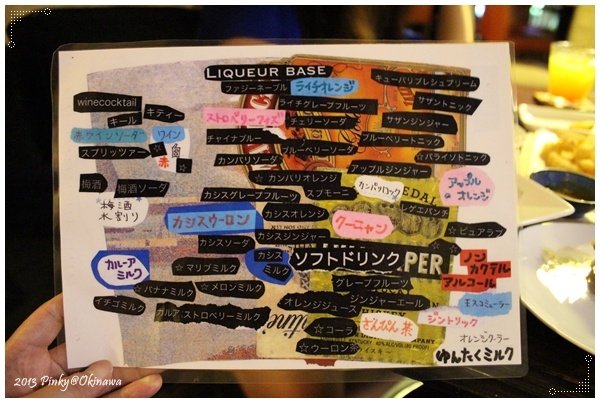 LIQUEUR BASE
winecocktail
キール
キティー
赤ワインソーダー
ワイン
スプリッツァー
赤
梅酒
梅酒ソーダ
梅酒
水割り
カルーア
ミルク
☆マリブミルク
☆バナナミルク
☆メロンミルク
イチゴミルク
カルア:ストロベリーミルク
ファジーネーブル
ライチオレンジ
ライチグレープフルーツ
ストロベリーフィズ
チェリーソーダー
チャイナブルー
ブルーベリーソーダー
カンパリソーダ
☆カンパリオレンジ
カシスグレープフルーツ
スプモーニ
カシスウーロン
カシスオレンジ
カシスジンジャー
カシスソーダ
カシス
ミルク
キューバリブレシュプリーム
サザントニック
サザンジンジャー
ブルーベリートニック
☆パライソトニック
アップルジンジャー
カンパリロック
アップル
オレンジ
レゲエパンチ
クーニャン
☆ピュアラブ
ソフトドリンク
グレープフルーツ
オレンジジュース
ジンジャーエール
☆コーラ
さんぴん茶
☆ウーロン茶
ノン
カクテル
アルコール
モスコミューラー
ジントリック
オレンジクーラー
ゆんたくミルク
2013 Pinky@Okinawa